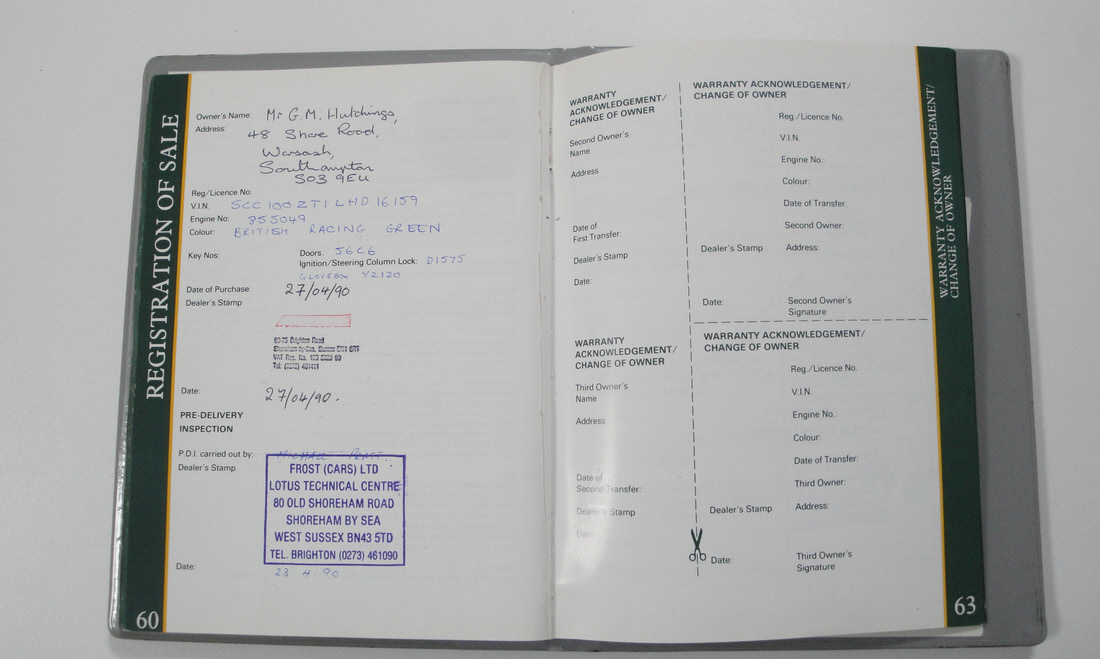 REGISTRATION OF SALE
Owner's Name: Mr G.M. Hutchings,
Address: 48 Shore Road,
Warsash,
Southampton
SO3 9EU
Reg/Licence No:
V.I.N. SCC100ZT1LHD16159
Engine No: 855049
Colour: BRITISH RACING GREEN
Key Nos: Doors: 56C6
Ignition/Steering Column Lock: D1575
GLOVEBOX Y2120
Date of Purchase: 27/04/90
Dealer's Stamp
Brighton Road
Date: 27/04/90.
PRE-DELIVERY
INSPECTION
P.D.I. carried out by: MICHAEL
Dealer's Stamp
FROST (CARS) LTD
LOTUS TECHNICAL CENTRE
80 OLD SHOREHAM ROAD
SHOREHAM BY SEA
WEST SUSSEX BN43 5TD
TEL. BRIGHTON (0273) 461090
Date: 23-4-90
60
WARRANTY
ACKNOWLEDGEMENT/
CHANGE OF OWNER
Second Owner's
Name
Address
Date of
First Transfer:
Dealer's Stamp
Date:
WARRANTY
ACKNOWLEDGEMENT/
CHANGE OF OWNER
Third Owner's
Name
Address
Date of
Second Transfer:
Dealer's Stamp
Date
WARRANTY ACKNOWLEDGEMENT/
CHANGE OF OWNER
Reg./Licence No.
V.I.N.
Engine No.:
Colour:
Date of Transfer:
Second Owner:
Dealer's Stamp Address:
Date: Second Owner's
Signature
WARRANTY ACKNOWLEDGEMENT/
CHANGE OF OWNER
Reg./Licence No.
V.I.N.
Engine No.:
Colour:
Date of Transfer:
Third Owner:
Dealer's Stamp Address:
Date: Third Owner's
Signature
WARRANTY ACKNOWLEDGEMENT/
CHANGE OF OWNER
63